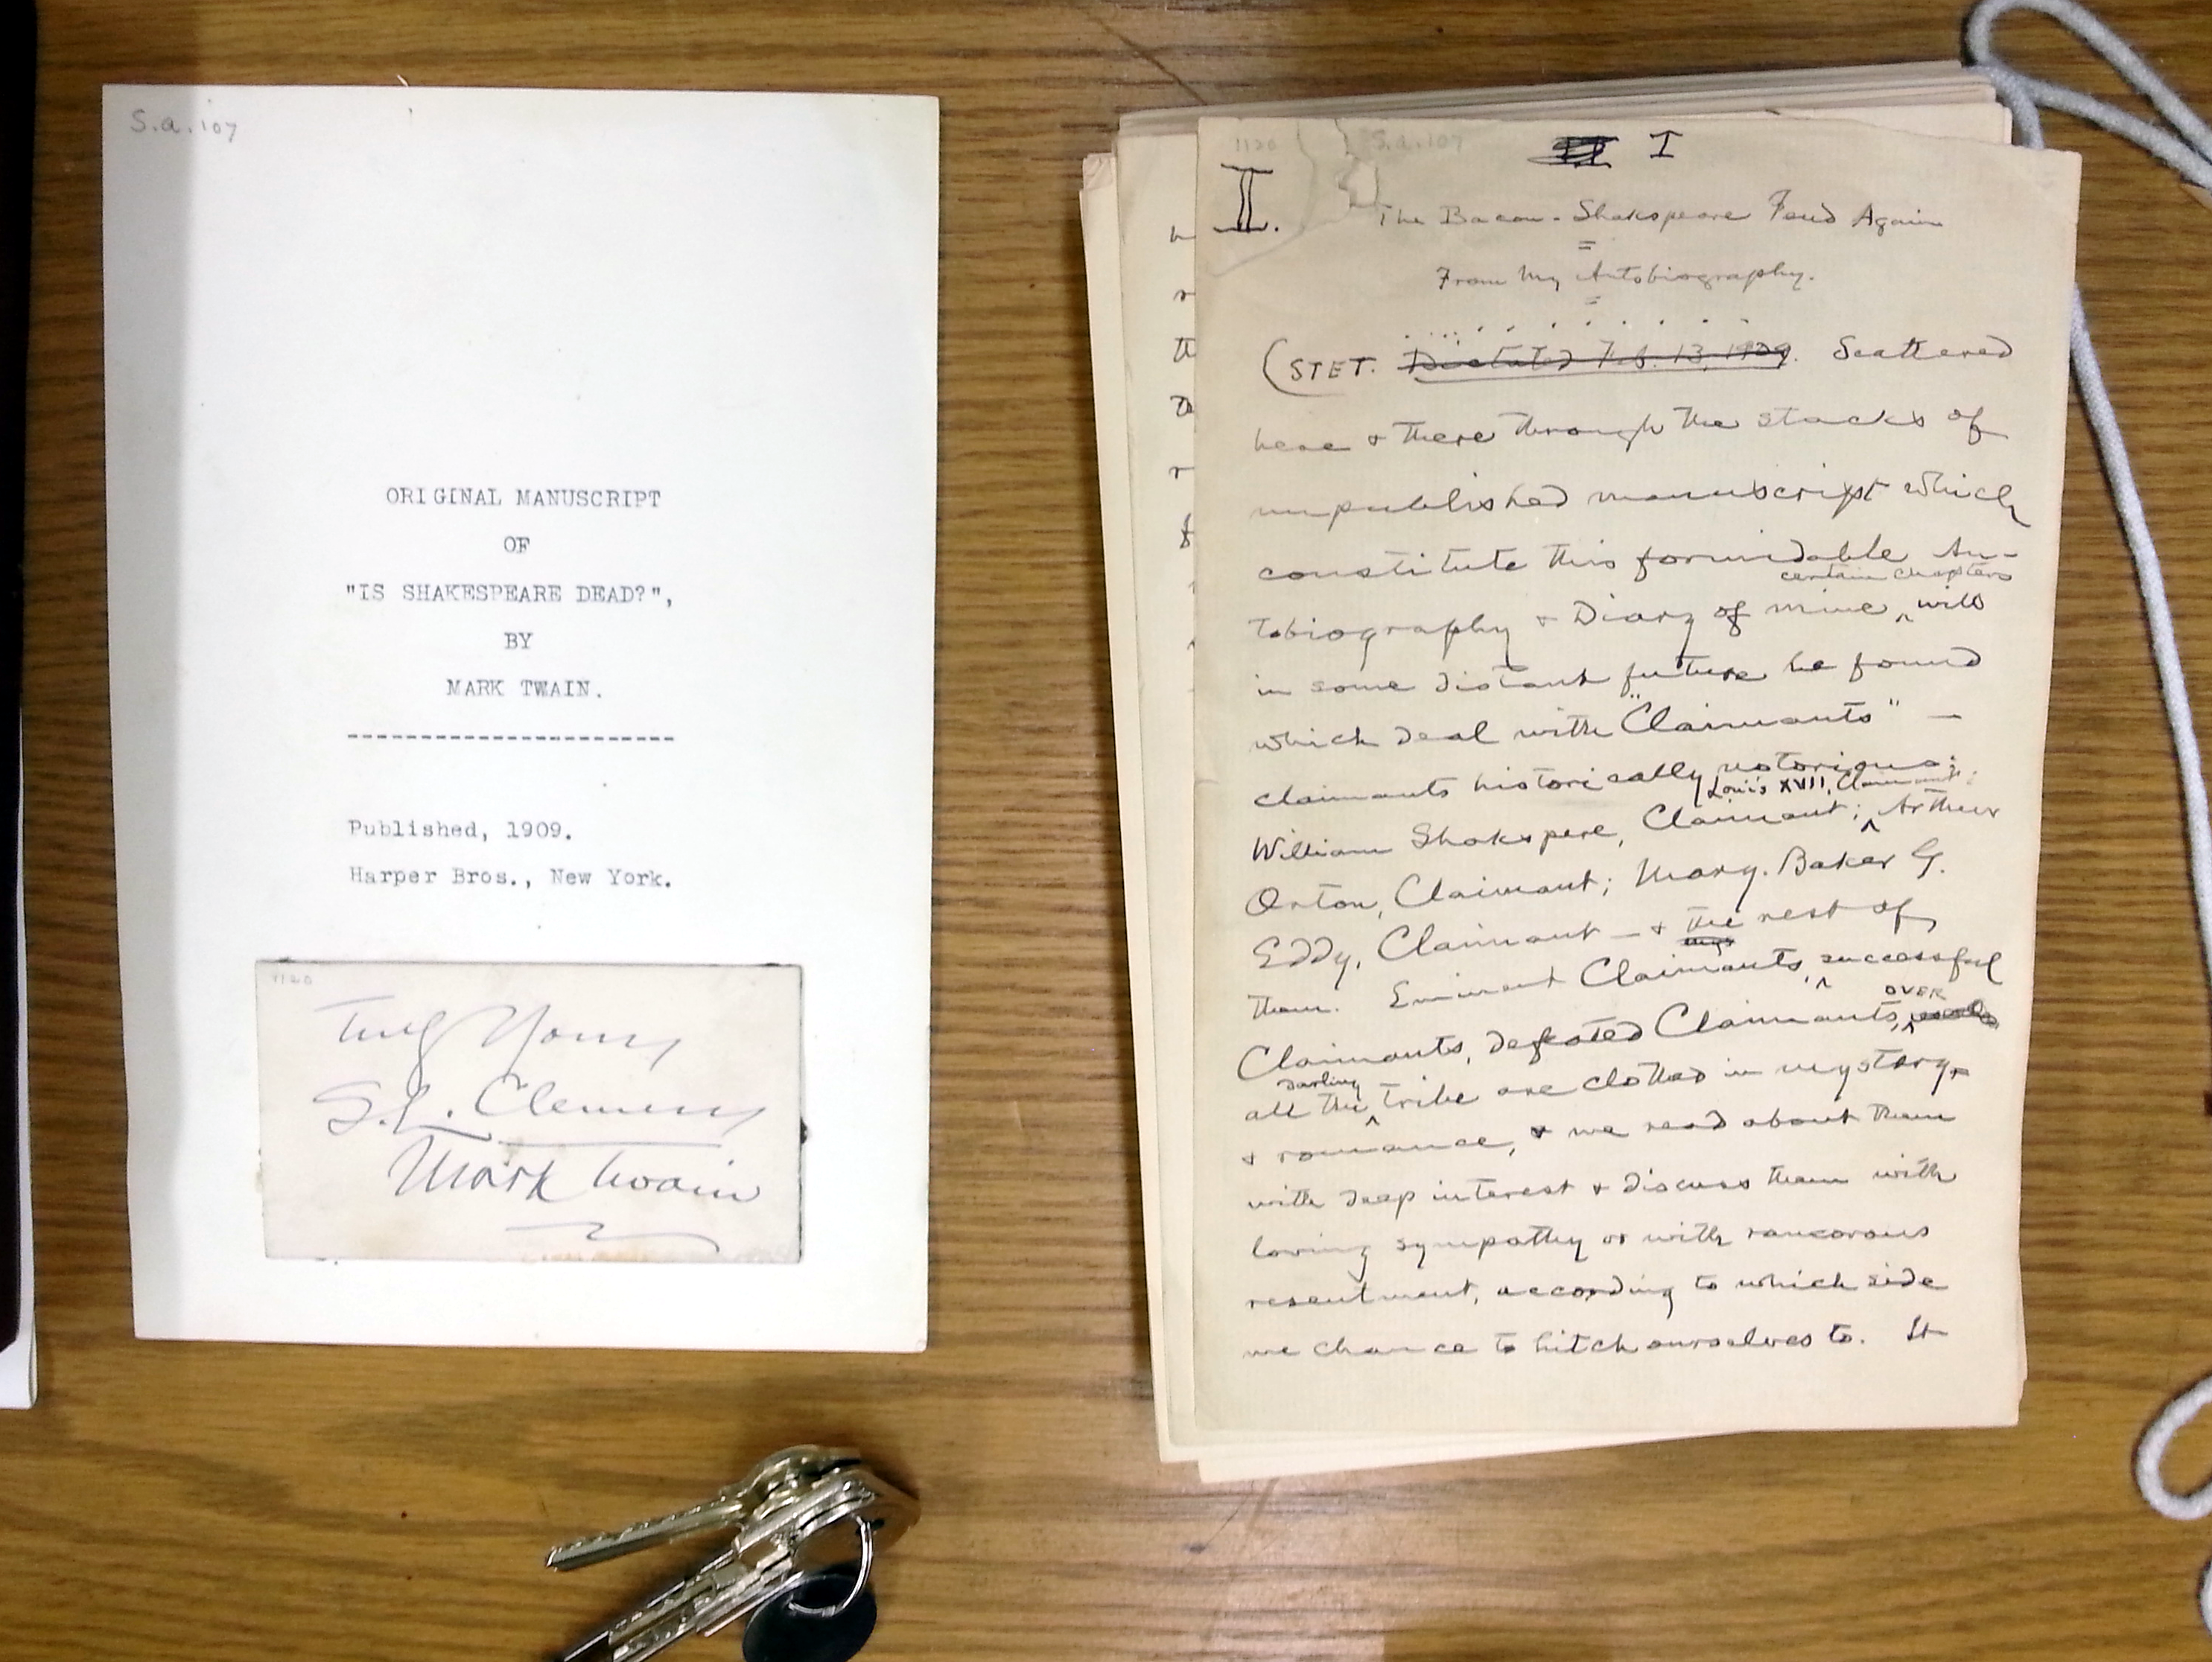 S.a.107
ORIGINAL MANUSCRIPT
OF
"IS SHAKESPEARE DEAD?",
BY
MARK TWAIN.
------------------------
Published, 1909.
Harper Bros., New York.
1120
Truly Yours
S.L. Clemens
Mark Twain
1120 S.a.107
I
II.
The Bacon-Shakspeare Feud Again
=
From My Autobiography.
=
(STET. Dictated Feb. 13, 1909. Scattered
here & there through the stacks of
unpublished manuscript which
constitute this formidable Au-
certain chapters
tobiography & Diary of mine, ^ will
in some distant future be found
which deal with "Claimants" —
claimants historically notorious:
Louis XVII, Claimant;
William Shakspere, Claimant; ^ Arthur
Orton, Claimant; Mary. Baker G.
Eddy, Claimant — & the rest of
them. Eminent Claimants, ^ successful
OVER
Claimants, defeated Claimants, ^
darling
all the ^ tribe are clothed in mystery,
& romance, & we read about them
with deep interest & discuss them with
loving sympathy or with rancorous
resentment, according to which side
we chance to hitch ourselves to. It